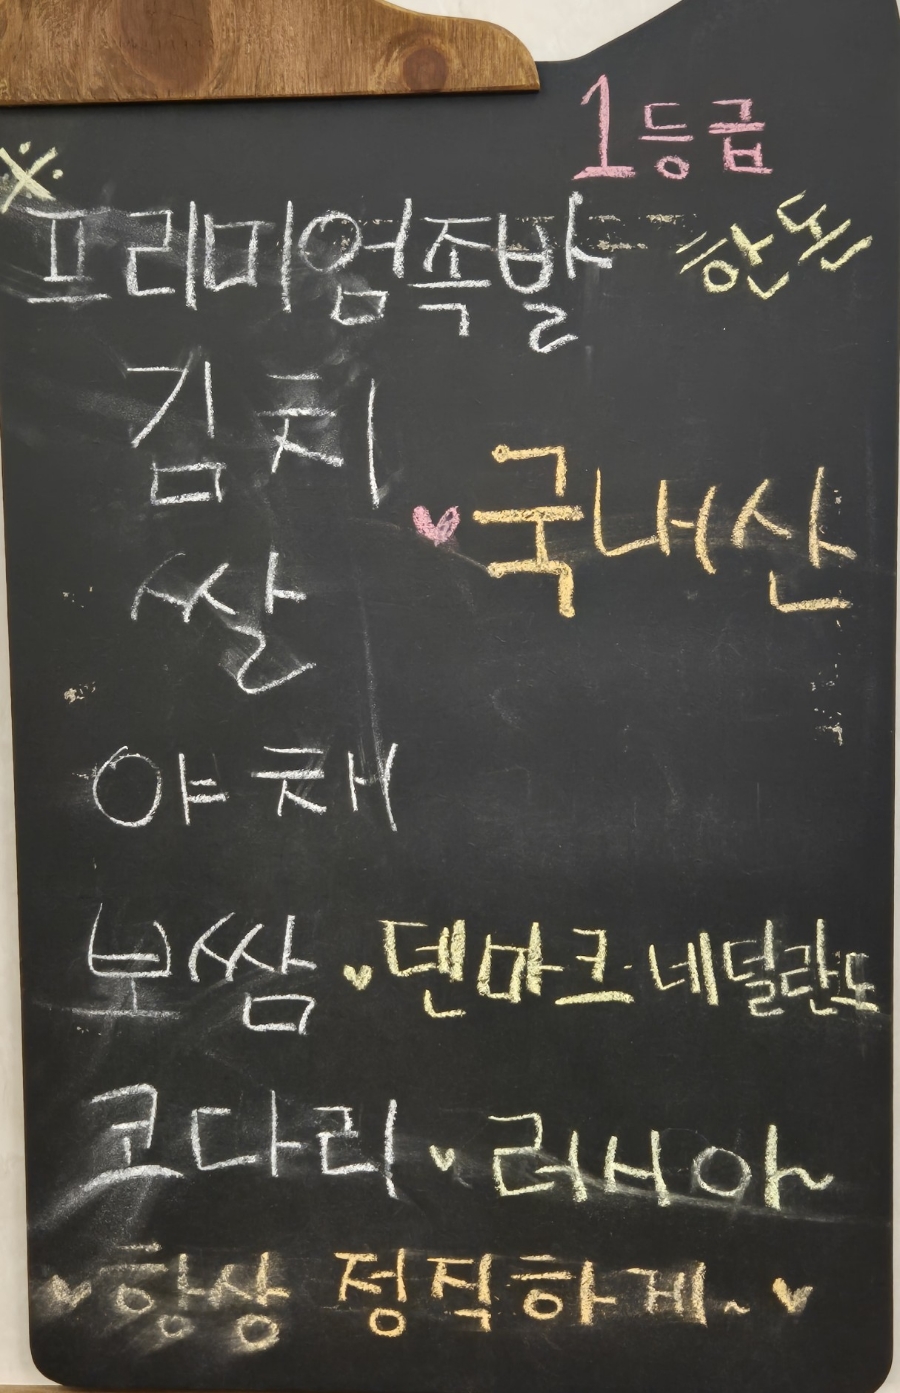 1등급
※
프리미엄족발 "한돈"
김치
♥국내산
쌀
야채
보쌈 ♥덴마크·네덜란드
코다리 ♥러시아~
♥항상 정직하게~♥